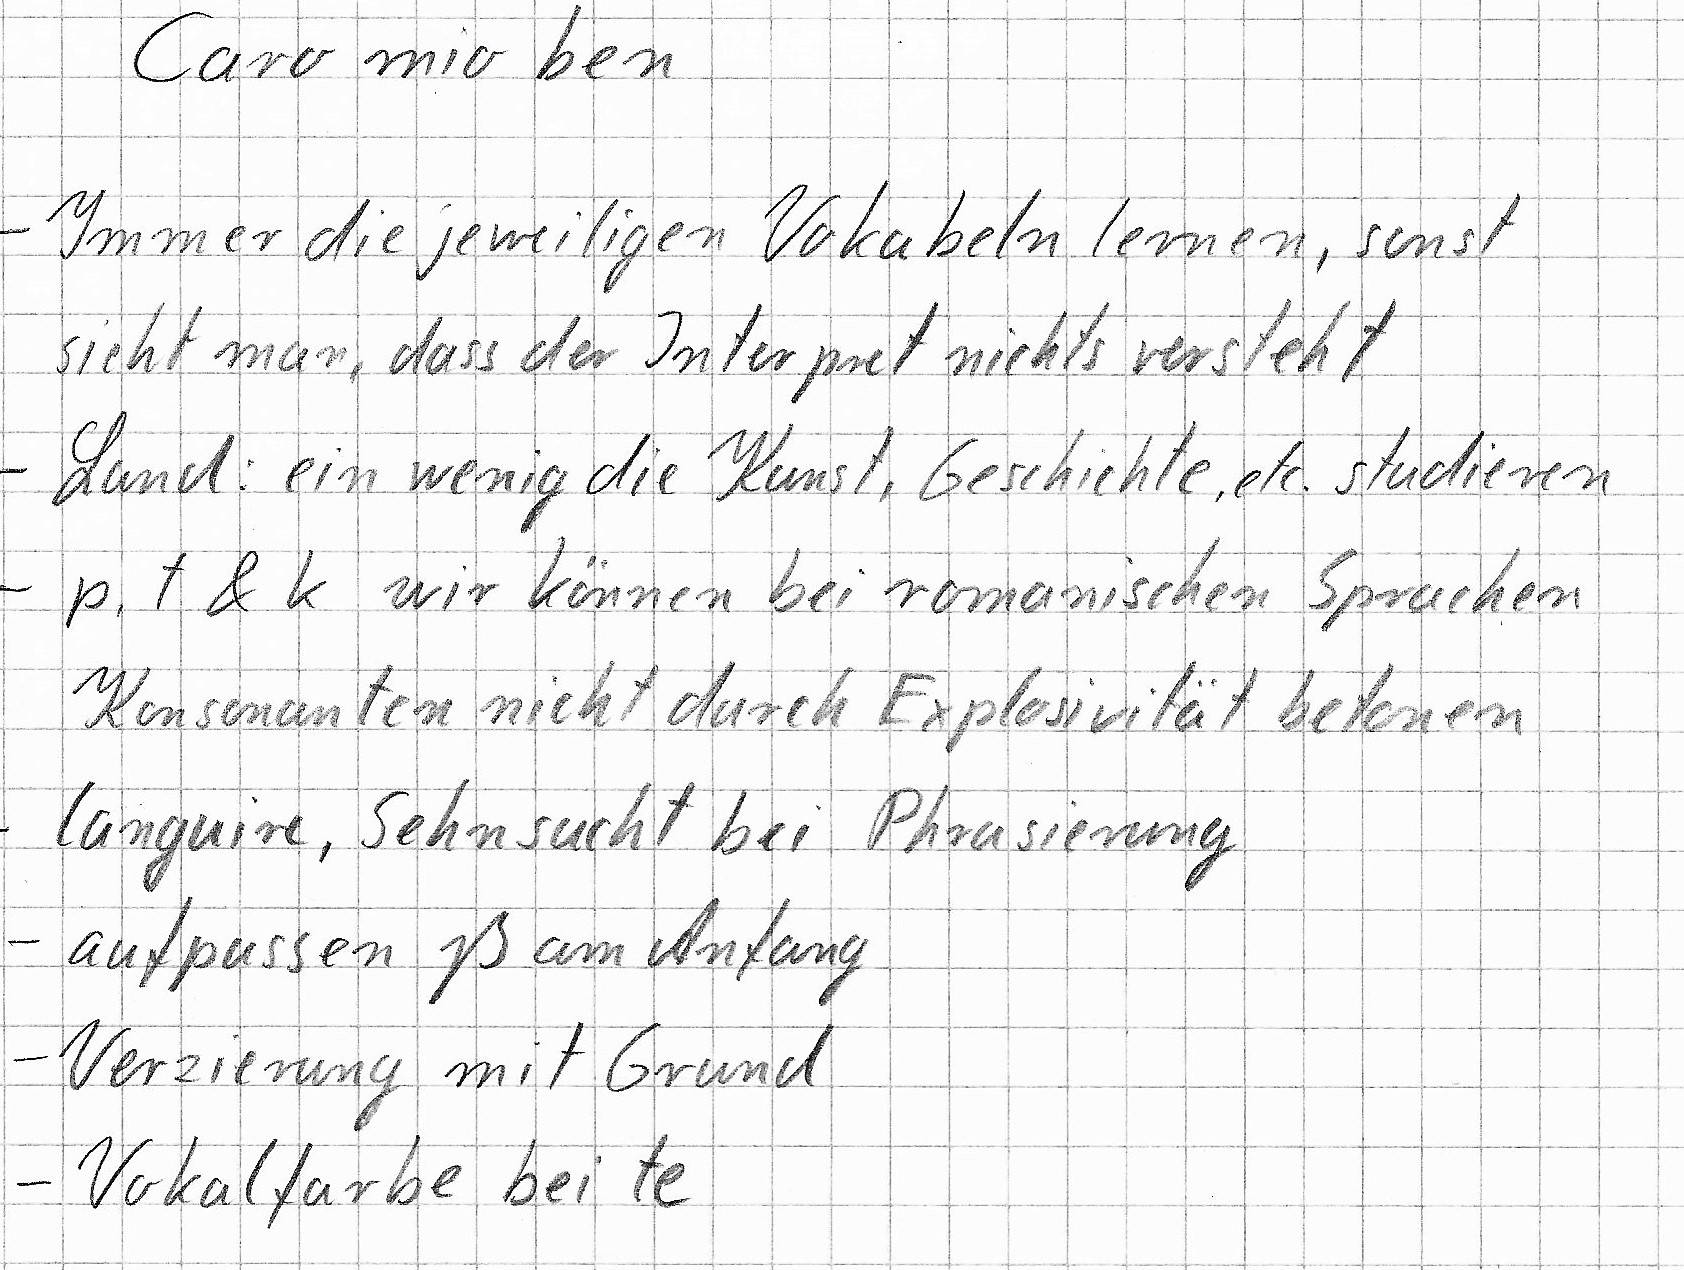 Caro mio ben
- Immer die jeweiligen Vokabeln lernen, sonst
sieht man, dass der Interpret nichts versteht
- Land: ein wenig die Kunst, Geschichte, etc. studieren
- p, t & k wir können bei romanischen Sprachen
Konsonanten nicht durch Explosivität betonen
- languire, Sehnsucht bei Phrasierung
- aufpassen ß am Anfang
- Verzierung mit Grund
- Vokalfarbe bei te